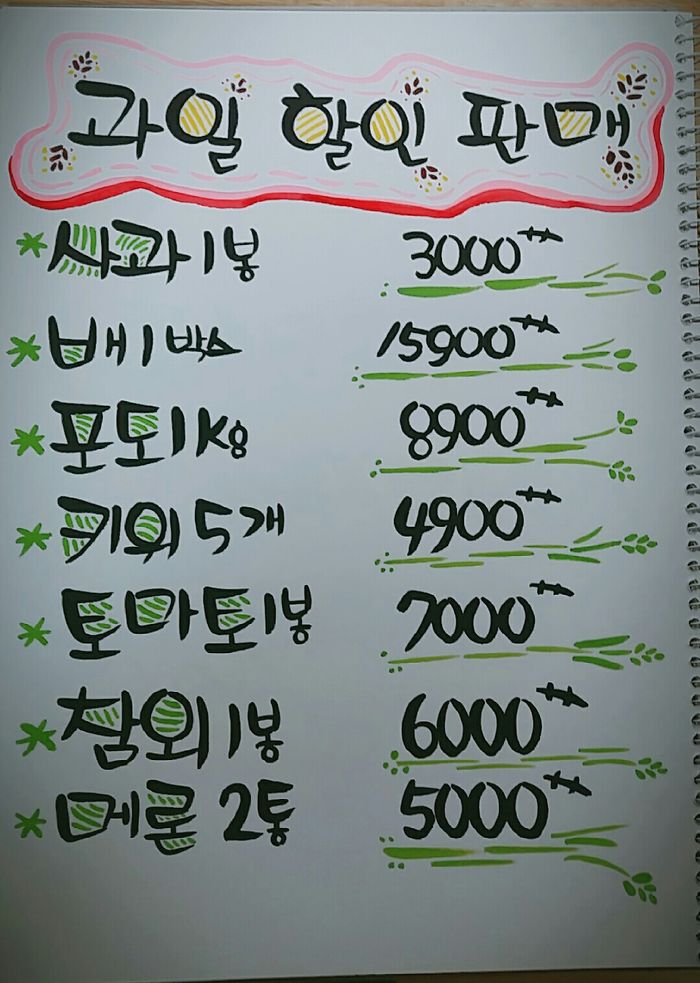 과일 할인 판매
*사과1봉 3000
*배1박스 15900
*포도1Kg 8900
*키위 5개 4900
*토마토1봉 7000
*참외1봉 6000
*메론 2통 5000